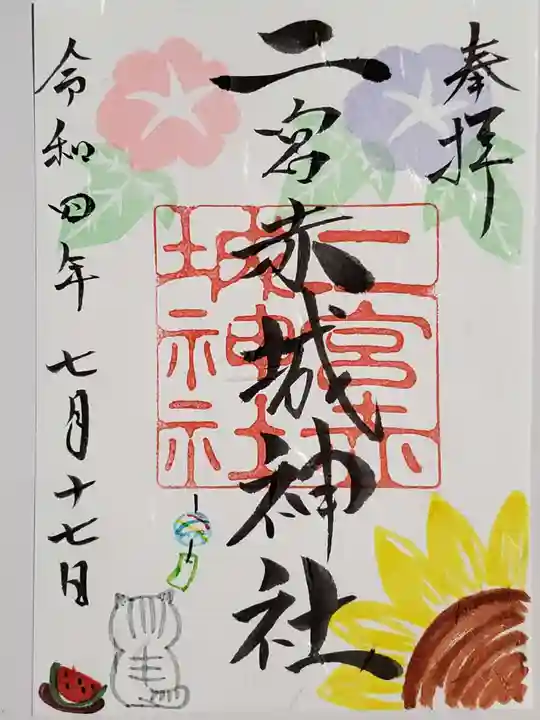 奉拝
二宮赤城神社
二宮赤城神社
令和四年七月十七日